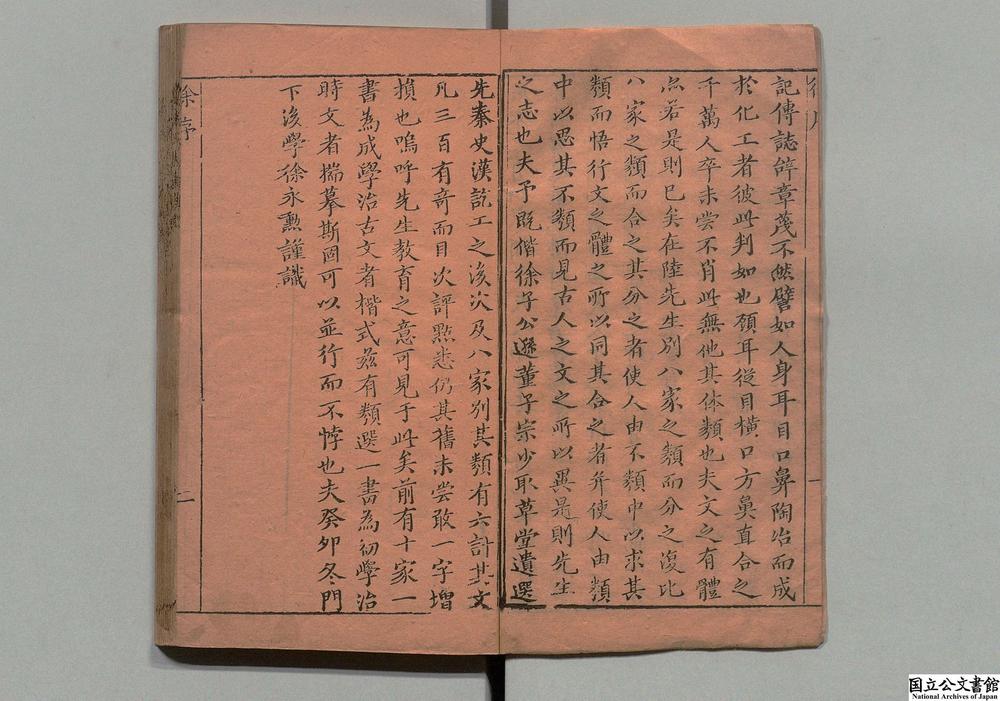 記傳誌辭章蔑不然譬如人身耳目口鼻陶冶而成
於化工者彼此判如也顧耳從目橫口方鼻直合之
千萬人卒未嘗不肖此無他其体類也夫文之有體
亦若是則已矣在陸先生別八家之類而分之復比
八家之類而合之其分之者使人由不類中以求其
類而悟行文之體之所以同其合之者并使人由類
中以思其不類而見古人之文之所以異是則先生
之志也夫予既偕徐子公遜董子宗少取草堂遺選
先秦史漢訖工之後次及八家別其類有六計其文
凡三百有奇而目次評點悉仍其舊未嘗敢一字增
損也嗚呼先生教育之意可見于此矣前有十家一
書為成學治古文者楷式茲有類選一書為初學治
時文者揣摹斯固可以並行而不悖也夫癸卯冬門
下後學徐永勳謹識
徐序
二
国立公文書館
National Archives of Japan